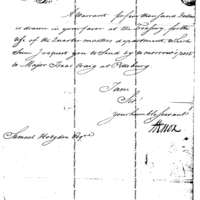 Sir
A Warrant for five thousand dollars
is drawn in your favor at the Treasury, for the
use of the Quarter masters department, which
Sum I request you to Send by tomorrow's post
to Major Isaac Craig at Pittsburg.
I am
Sir
your humble servant
H Knox
Samuel Hodgdon Esqre